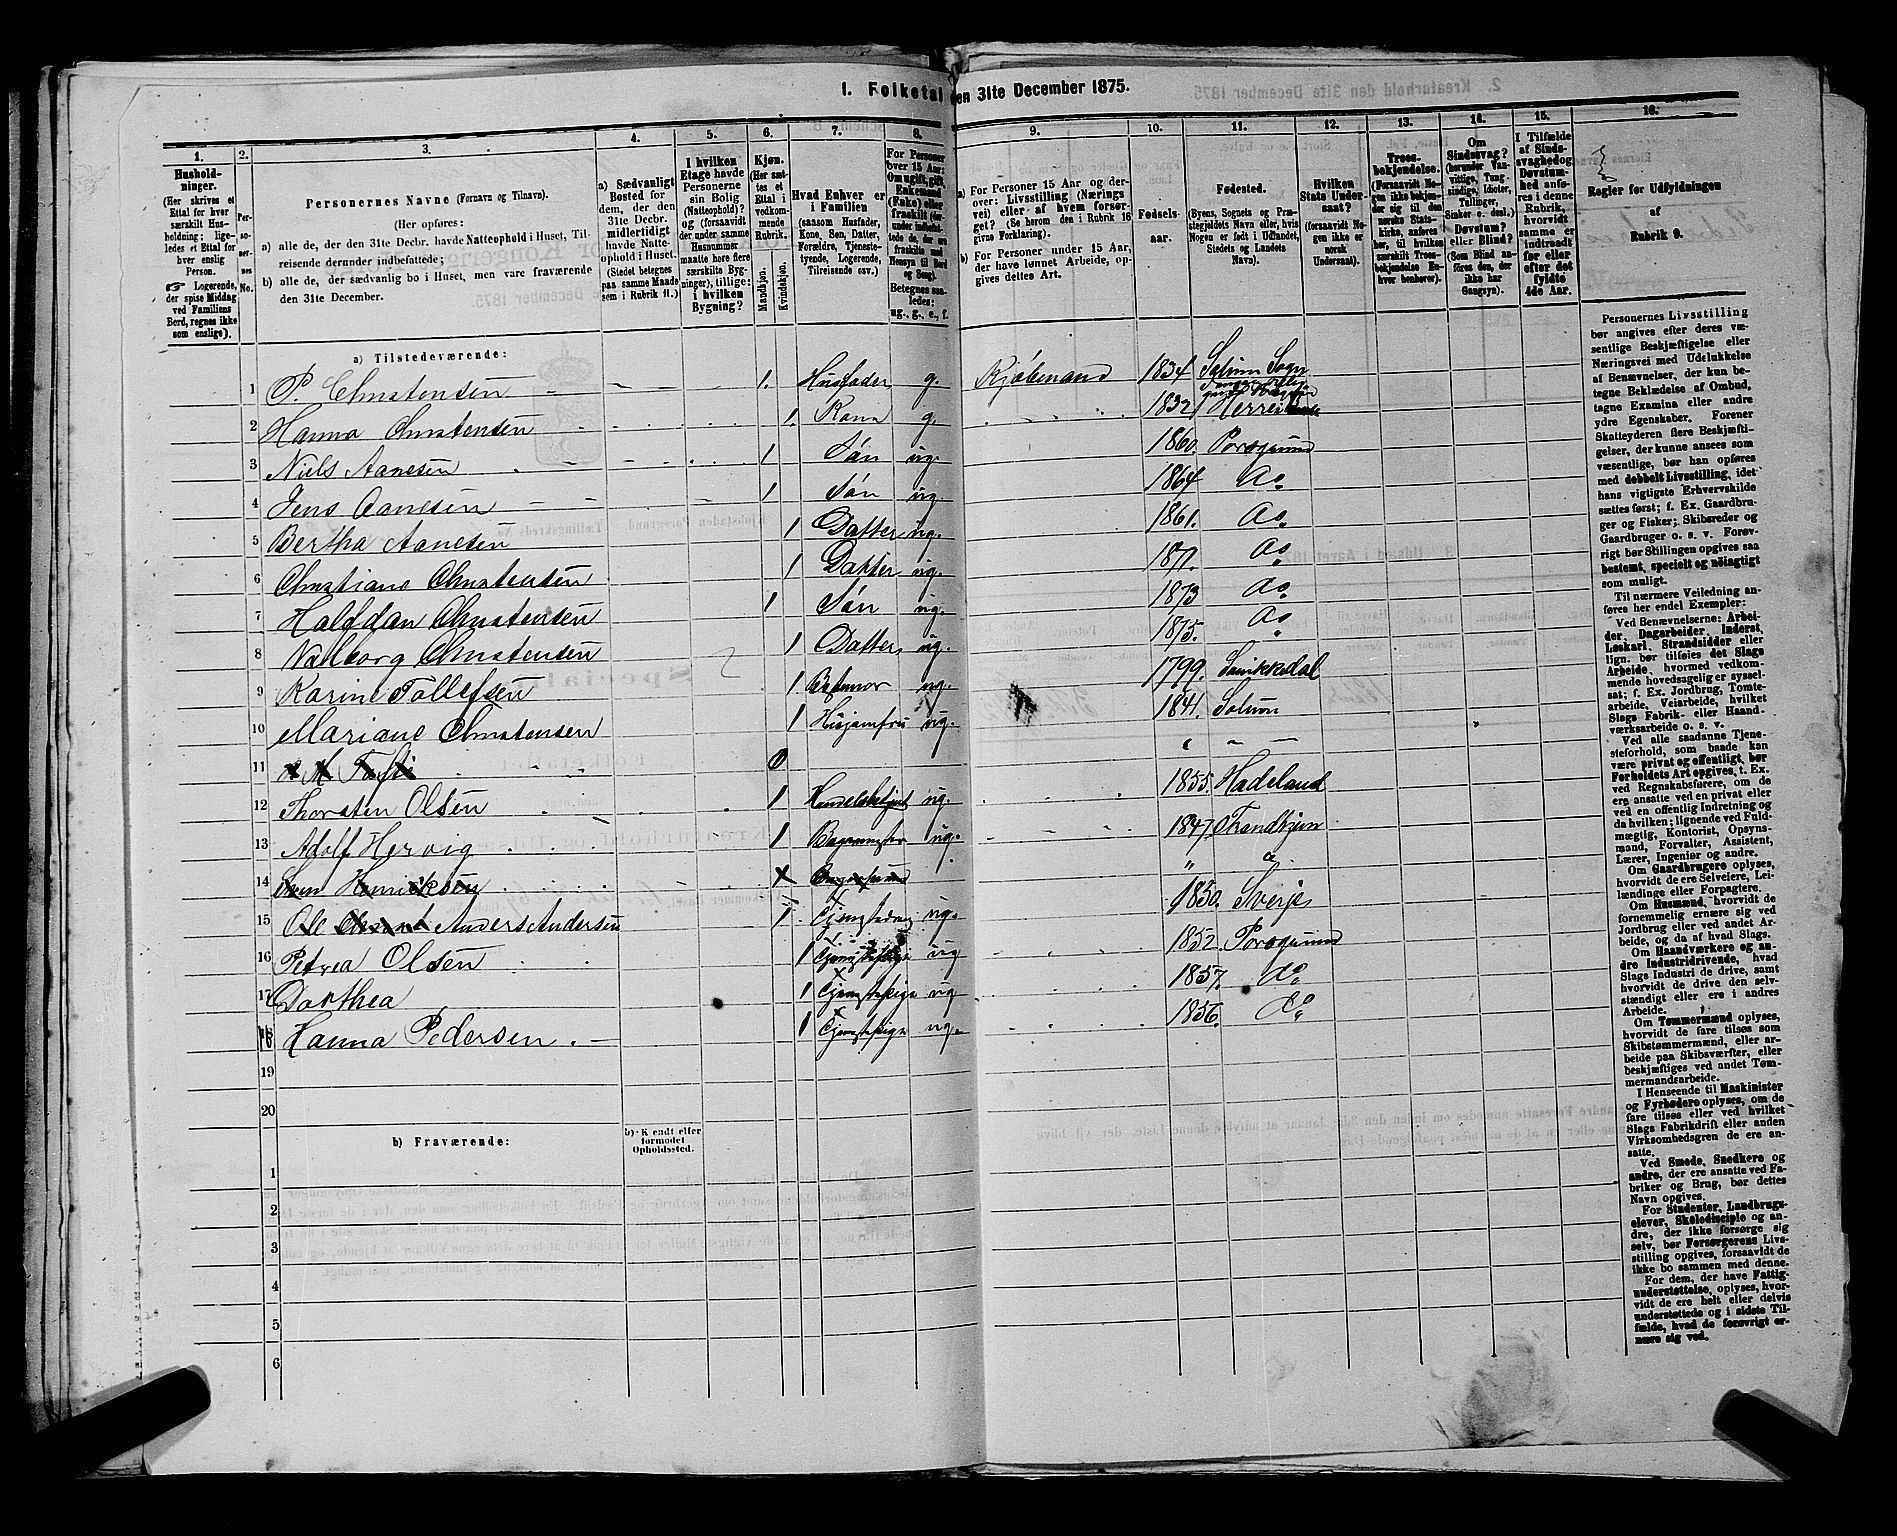 1. Folketal den 31te December 1875.
1. 2. 3. 4. 5. 6. 7. 8. 9. 10. 11. 12. 13. 14. 15. 16.
Hushold-
ninger.
(Her skrives et
Ettal for hver
særskilt Hus-
holdning; lige-
ledes et Ettal for
hver enslig
Person.
Logerende,
der spise Middag
ved Familiens
Bord, regnes ikke
som enslige).
Per-
so-
ner-
nes
No.
Personernes Navne (Fornavn og Tilnavn).
(Her opføres:
a) alle de, der den 31te Decbr. havde Natteophold i Huset, Til-
reisende derunder indbefattede;
b) alle de, der sædvanlig bo i Huset, men vare fraværende
den 31te December.
a) Sædvanligt
Bosted for
dem, der den
31te Decbr.
midlertidigt
havde Natte-
ophold i Huset.
(Stedet betegnes
paa samme Maade
som i Rubrik 11.)
I hvilken
Etage havde
Personerne
sin Bolig
(Natteophold)?
og (forsaavidt
der under samme
Husnummer
maatte høre flere
særskilte Byg-
ninger), tillige:
i hvilken
Bygning?
Kjøn.
(Her sæt-
tes et
Ettal i
vedkom-
mende
Rubrik.
Mandkjøn.
Kvindekjøn.
Hvad Enhver er
i Familien
(saasom Husfader,
Kone, Søn, Datter,
Forældre, Tjeneste-
tyende, Logerende,
Tilreisende osv.)
For Personer
over 15 Aar:
Om ugift, gift,
Enkemand
(Enke) eller
fraskilt (der-
under indbefat-
tede de, der ere
fraskilte med
Hensyn til Bord
og Seng).
Betegnes saa-
ledes:
ug., g., e., f.
a) For Personer 15 Aar og der-
over: Livsstilling (Nærings
vei) eller af hvem forsør-
get. (Se herom den i Rubrik 16
givne Forklaring).
b) For Personer under 15 Aar,
der have lønnet Arbeide, op-
gives dettes Art.
Fødsels-
aar.
Fødested.
(Byens, Sognets og Præ-
stegjeldets Navn eller, hvis
Nogen er født i Udlandet,
Stedets og Landets
Navn).
Hvilken
Stats Under-
saat?
(forsaavidt No-
gen ikke er
norsk
Undersaat).
Troes-
bekjendelse.
(Forsaavidt No-
gen ikke beken-
der sig til den
norske Stats-
kirke, anføres
her, til hvilken
særskilt Troes-
bekjendelse En-
hver henhører).
Om
Sindssvag?
(herunder Van-
vittige, Tung-
sindige, Idioter,
Tullinger,
Sinker o. desl.)
Døvstum?
eller Blind?
(Som Blind an-
føres den, der
ikke har
Gangsyn).
I Tilfælde
af Sinds-
svaghed og
Døvstum-
hed anfø-
res i denne
Rubrik,
hvorvidt
samme er
indtraadt
før eller
efter det
fyldte
4de Aar.
Regler for Udfyldningen
af
Rubrik 9.
a) Tilstedeværende:
1 P. Christensen 1. Husfader g. Kjøbmand 1834 Solum Sogn
2 Hanna Christensen 1. Kone g. 1832
3 Niels Aanesen 1 Søn ug. 1860. Porsgrund
4 Jens Aanesen 1 Søn ug. 1864 do
5 Bertha Aanesen 1 Datter ug. 1861. do
6 Christiane Christensen 1 Datter ug. 1871. do
7 Halfdan Christensen 1 Søn ug. 1873 do
8 Valborg Christensen 1 Datter ug. 1875. do
9 Karine Tollefsen 1 Bestemor ug. 1799. Sannikedal
10 Mariane Christensen 1 Husjomfru ug. 1841. Solum
11 0
12 Thorsten Olsen 1 Handelsbetjent ug. 1855. Hadeland
13 Adolf Hervig 1 ug. 1847. Trondhjem
14 Henriksen
15 Ole Anders Andersen 1 Tjenstedreng ug. 1850. Sverje
16 Petrea Olsen 1 Tjenstepige ug 1852. Porsgrund
17 Dorthea 1 Tjenstepige ug 1857. do
18 Hanna Pedersen 1 Tjenstepige ug. 1856. do
19
20
b) Fraværende:
b) Kjendt eller
formodet
Opholdssted.
1
2
3
4
5
6
Personernes Livsstilling
bør angives efter deres væ-
sentlige Beskjæftigelse eller
Næringsvei med Udelukkelse
af Benævnelser, der kun be-
tegne Beklædelse af Ombud,
tagne Examina eller andre
ydre Egenskaber. Forener
Skatteyderen flere Beskjæfti-
gelser, der kunne ansees som
væsentlige, bør han opføres
med dobbelt Livsstilling, idet
hans vigtigste Erhvervskilde
sættes først; f. Ex. Gaardbru-
ger og Fisker; Skibsreder og
Gaardbruger o. s. v. Forøv-
rigt bør Stillingen opgives saa
bestemt, specielt og nøiagtigt
som muligt.
Til nærmere Veiledning an-
føres her endel Exempler:
Ved Benævnelserne: Arbei-
der, Dagarbeider, Inderst,
Løskarl, Strandsidder eller
lign. bør tilføies det Slags
Arbeide, hvormed vedkom-
mende hovedsagelig er syssel-
sat; f. Ex. Jordbrug, Tomte-
arbeide, Veiarbeide, hvilket
Slags Fabrik- eller Haand-
værksarbeide o. s. v.
Ved alle saadanne Tjene-
steforhold, som baade kan
være privat og offentligt, bør
Forholdets Art opgives, t. Ex.
ved Regnskabsførere, om de
ere ansatte ved en privat eller
ved en offentlig Indretning og
da hvilken; lignende ved Fuld-
mægtig, Kontorist, Opsyns-
mand, Forvalter, Assistent,
Lærer, Ingeniør og andre.
Om Gaardbrugere oplyses,
hvorvidt de ere Selveiere, Lei-
lændinge eller Forpagtere.
Om Husmænd, hvorvidt de
fornemmelig ernære sig ved
Jordbrug eller ved andet Ar-
beide, og da af hvad Slags.
Om Haandværkere og an-
dre Industridrivende, hvad
Slags Industri de drive, samt
hvorvidt de drive den selv-
stændigt eller ere i andres
Arbeide.
Om Tømmermænd oplyses,
hvorvidt de fare tilsøs som
Skibstømmermænd, eller ar-
beide paa Skibsværfter, eller
beskjæftiges ved andet Tøm-
mermandsarbeide.
I Henseende til Maskinister
og Fyrbødere oplyses, om de
fare tilsøs eller ved hvilket
Slags Fabrikdrift eller anden
Virksomhedsgren de ere an-
satte.
Ved Smede, Snedkere og
andre, der ere ansatte ved Fa-
briker og Brug, bør dettes
Navn opgives.
For Studenter, Landbrugs-
elever, Skoledisciple og an-
dre, der ikke forsørge sig
selv, bør Forsørgerens Livs-
stilling opgives, forsaavidt de
ikke bo sammen med denne.
For dem, der have Fattig-
understøttelse, oplyses, hvor-
vidt de ere helt eller delvis
understøttede og i sidste Til-
fælde, hvad de forøvrigt er-
nære sig ved.